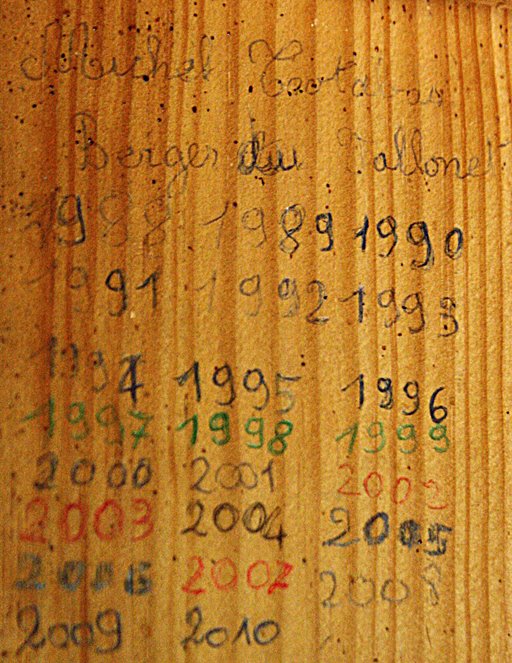 Michel
Berger du Vallonet
1988 1989 1990
1991 1992 1993
1994 1995 1996
1997 1998 1999
2000 2001 2002
2003 2004 2005
2006 2007 2008
2009 2010